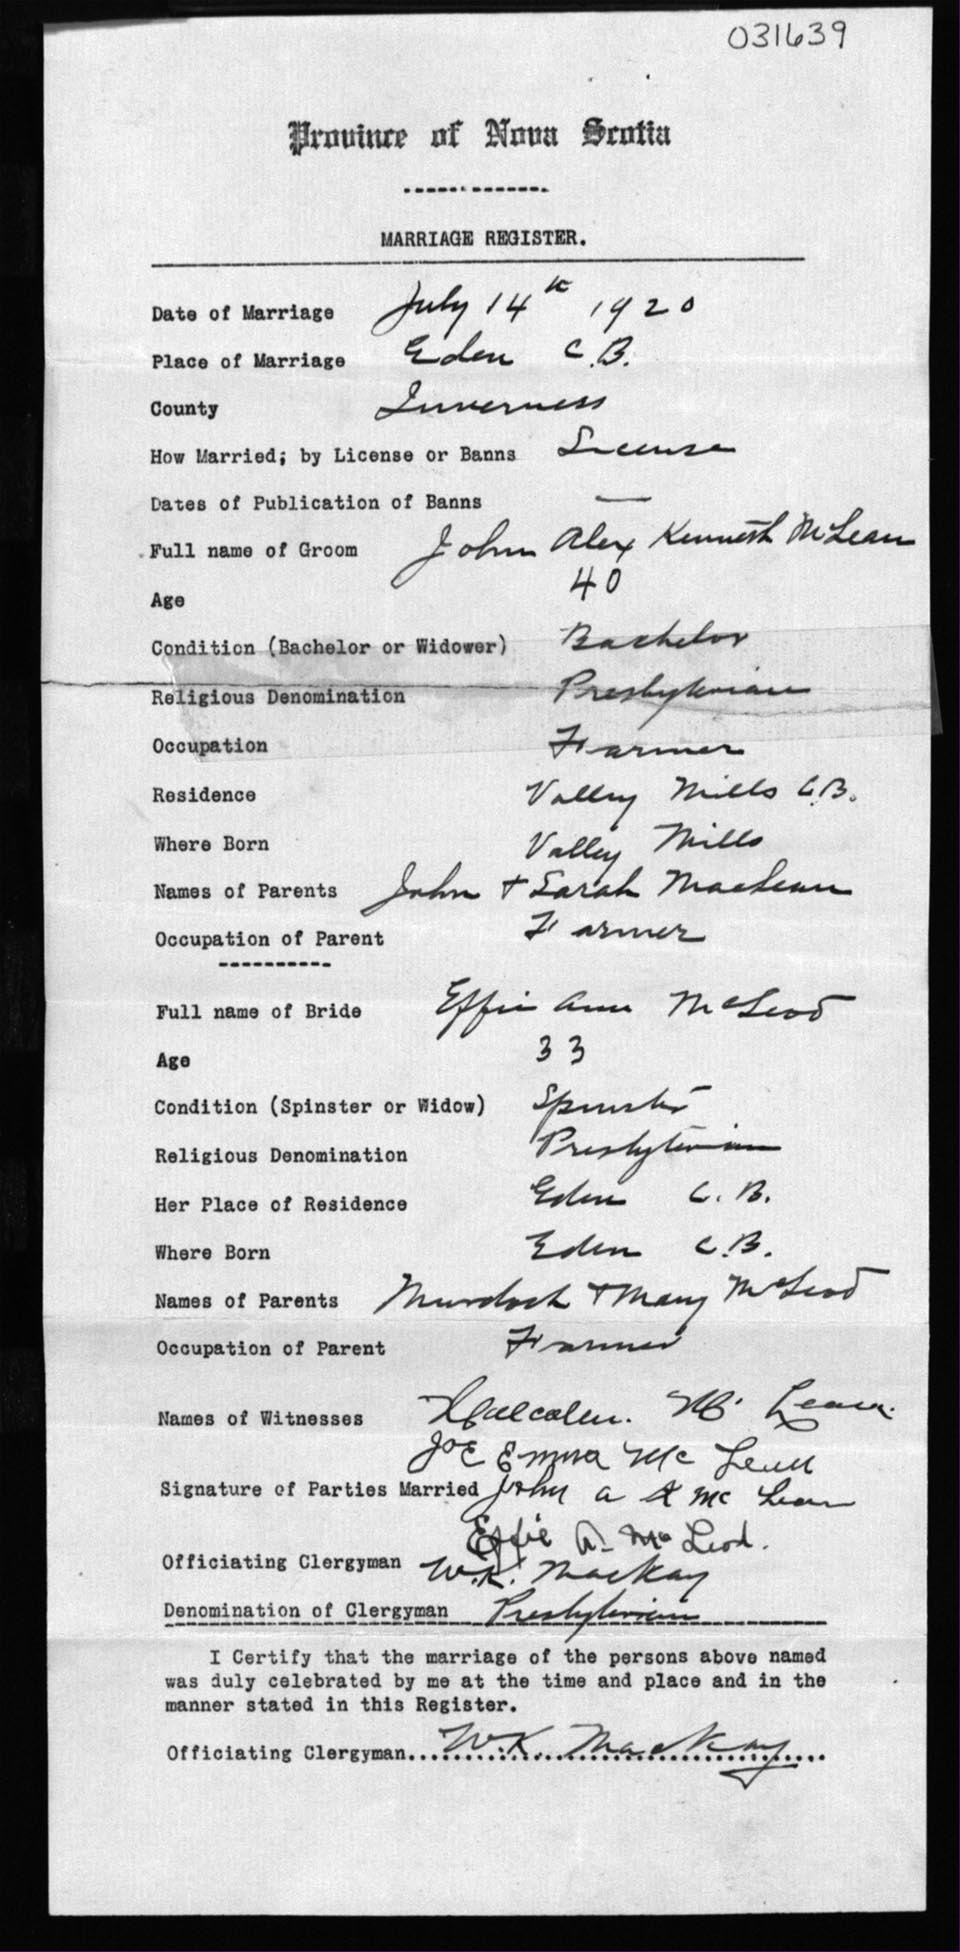 031639
Province of Nova Scotia
MARRIAGE REGISTER.
Date of Marriage July 14th 1920
Place of Marriage Eden C.B.
County Inverness
How Married; by License or Banns License
Dates of Publication of Banns —
Full name of Groom John Alex Kenneth McLean
Age 40
Condition (Bachelor or Widower) Bachelor
Religious Denomination Presbyterian
Occupation Farmer
Residence Valley Mills C.B.
Where Born Valley Mills
Names of Parents John + Sarah MacLean
Occupation of Parent Farmer
Full name of Bride Effie Ann McLeod
Age 33
Condition (Spinster or Widow) Spinster
Religious Denomination Presbyterian
Her Place of Residence Eden C. B.
Where Born Eden C.B.
Names of Parents Murdoch + Mary McLeod
Occupation of Parent Farmer
Names of Witnesses Malcolm Mc Lean
Mc Lean
Signature of Parties Married John A K Mc Lean
Effie A. McLeod.
Officiating Clergyman W.K. MacKay
Denomination of Clergyman Presbyterian
I Certify that the marriage of the persons above named
was duly celebrated by me at the time and place and in the
manner stated in this Register.
Officiating Clergyman... W.K. MacKay